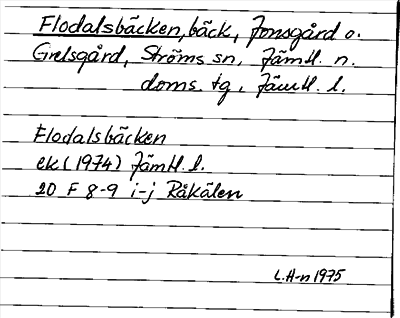 Flodalsbäcken, bäck, Jonsgård o.
Grelsgård, Ströms sn, Jämtl. n.
doms. tg, Jämtl. l.
Flodalsbäcken
ek (1974) Jämtl. l.
20 F 8-9 i-j Råkälen
L.H-n 1975